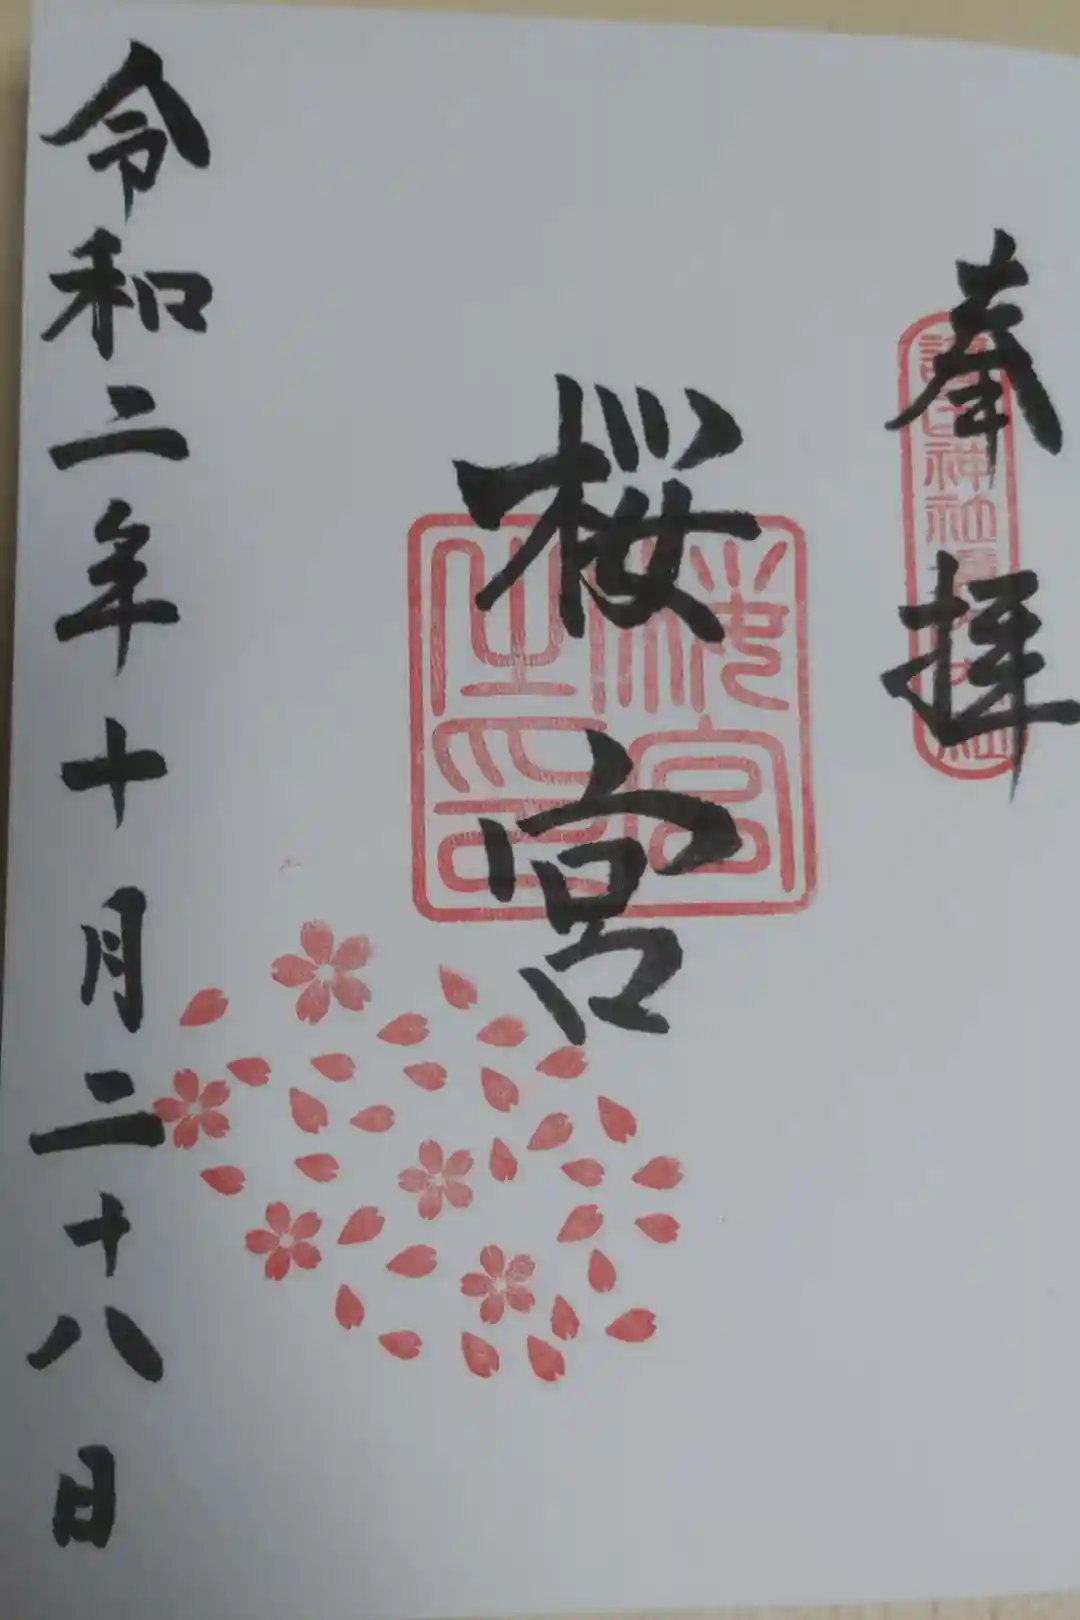 奉拝
桜宮
令和二年十月二十八日
櫻宮之印